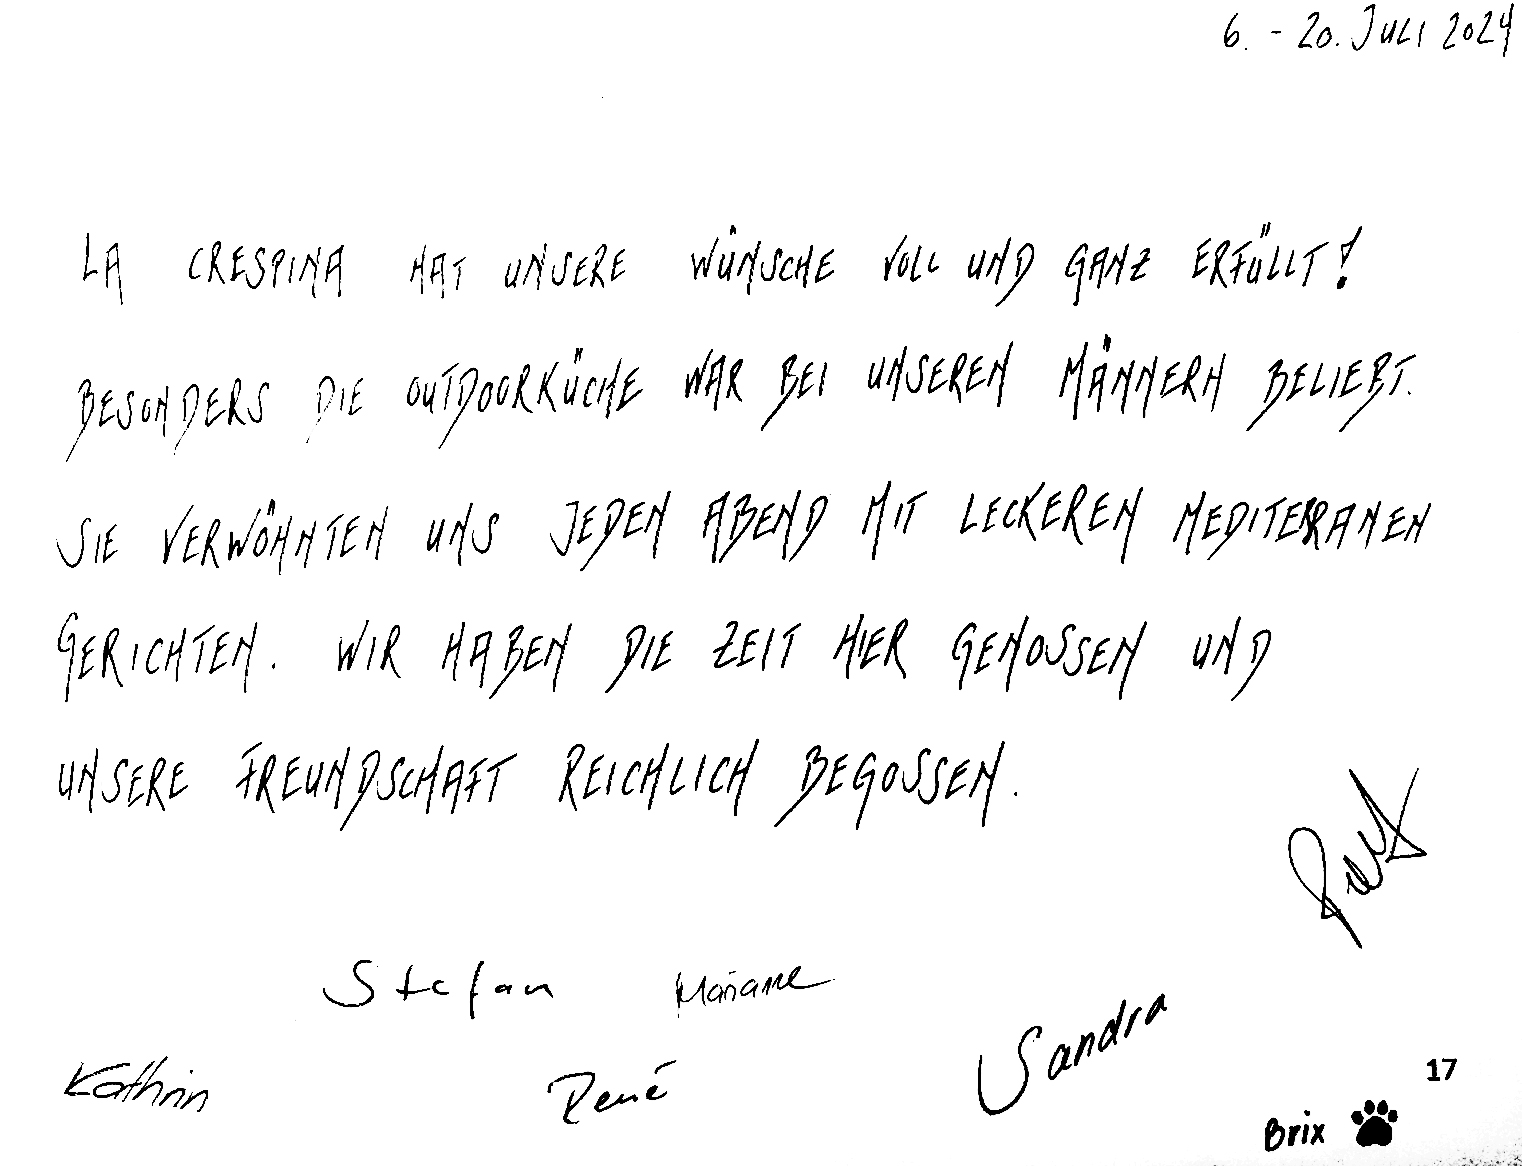 6. - 20. JULI 2024
LA CRESPINA HAT UNSERE WÜNSCHE VOLL UND GANZ ERFÜLLT!
BESONDERS DIE OUTDOORKÜCHE WAR BEI UNSEREN MÄNNERN BELIEBT.
SIE VERWÖHNTEN UNS JEDEN ABEND MIT LECKEREN MEDITERRANEN
GERICHTEN. WIR HABEN DIE ZEIT HIER GENOSSEN UND
UNSERE FREUNDSCHAFT REICHLICH BEGOSSEN.
Stefan Mariane
Sandra
Kathrin René
17
Brix